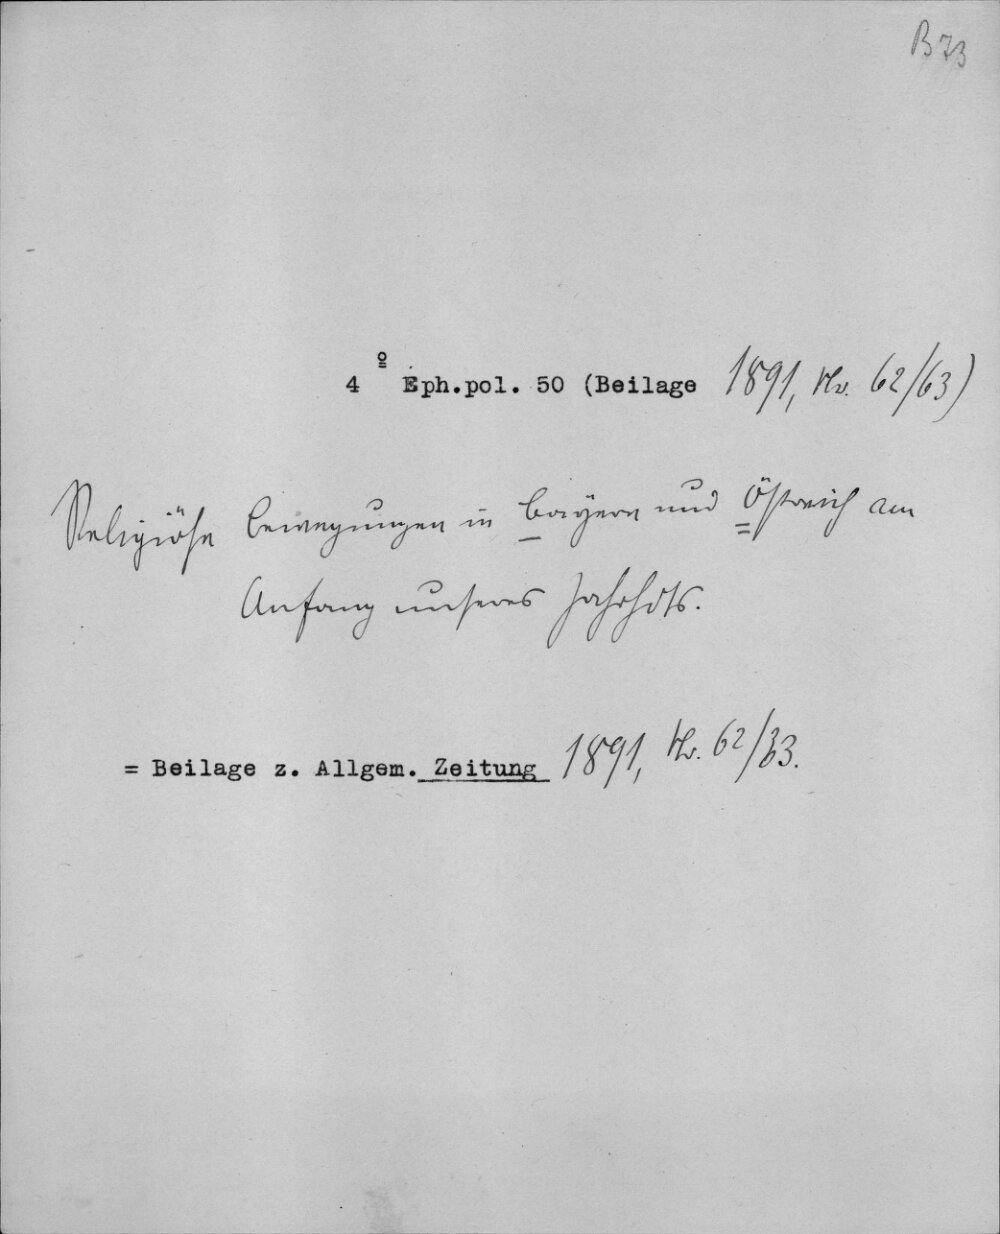 B 73
4º Eph.pol. 50 (Beilage 1891, Nr. 62/63)
Religiöse bewegungen in bayern und Östreich am
Anfang unseres Jahrhdts.
= Beilage z. Allgem. Zeitung 1891, Nr. 62/63.